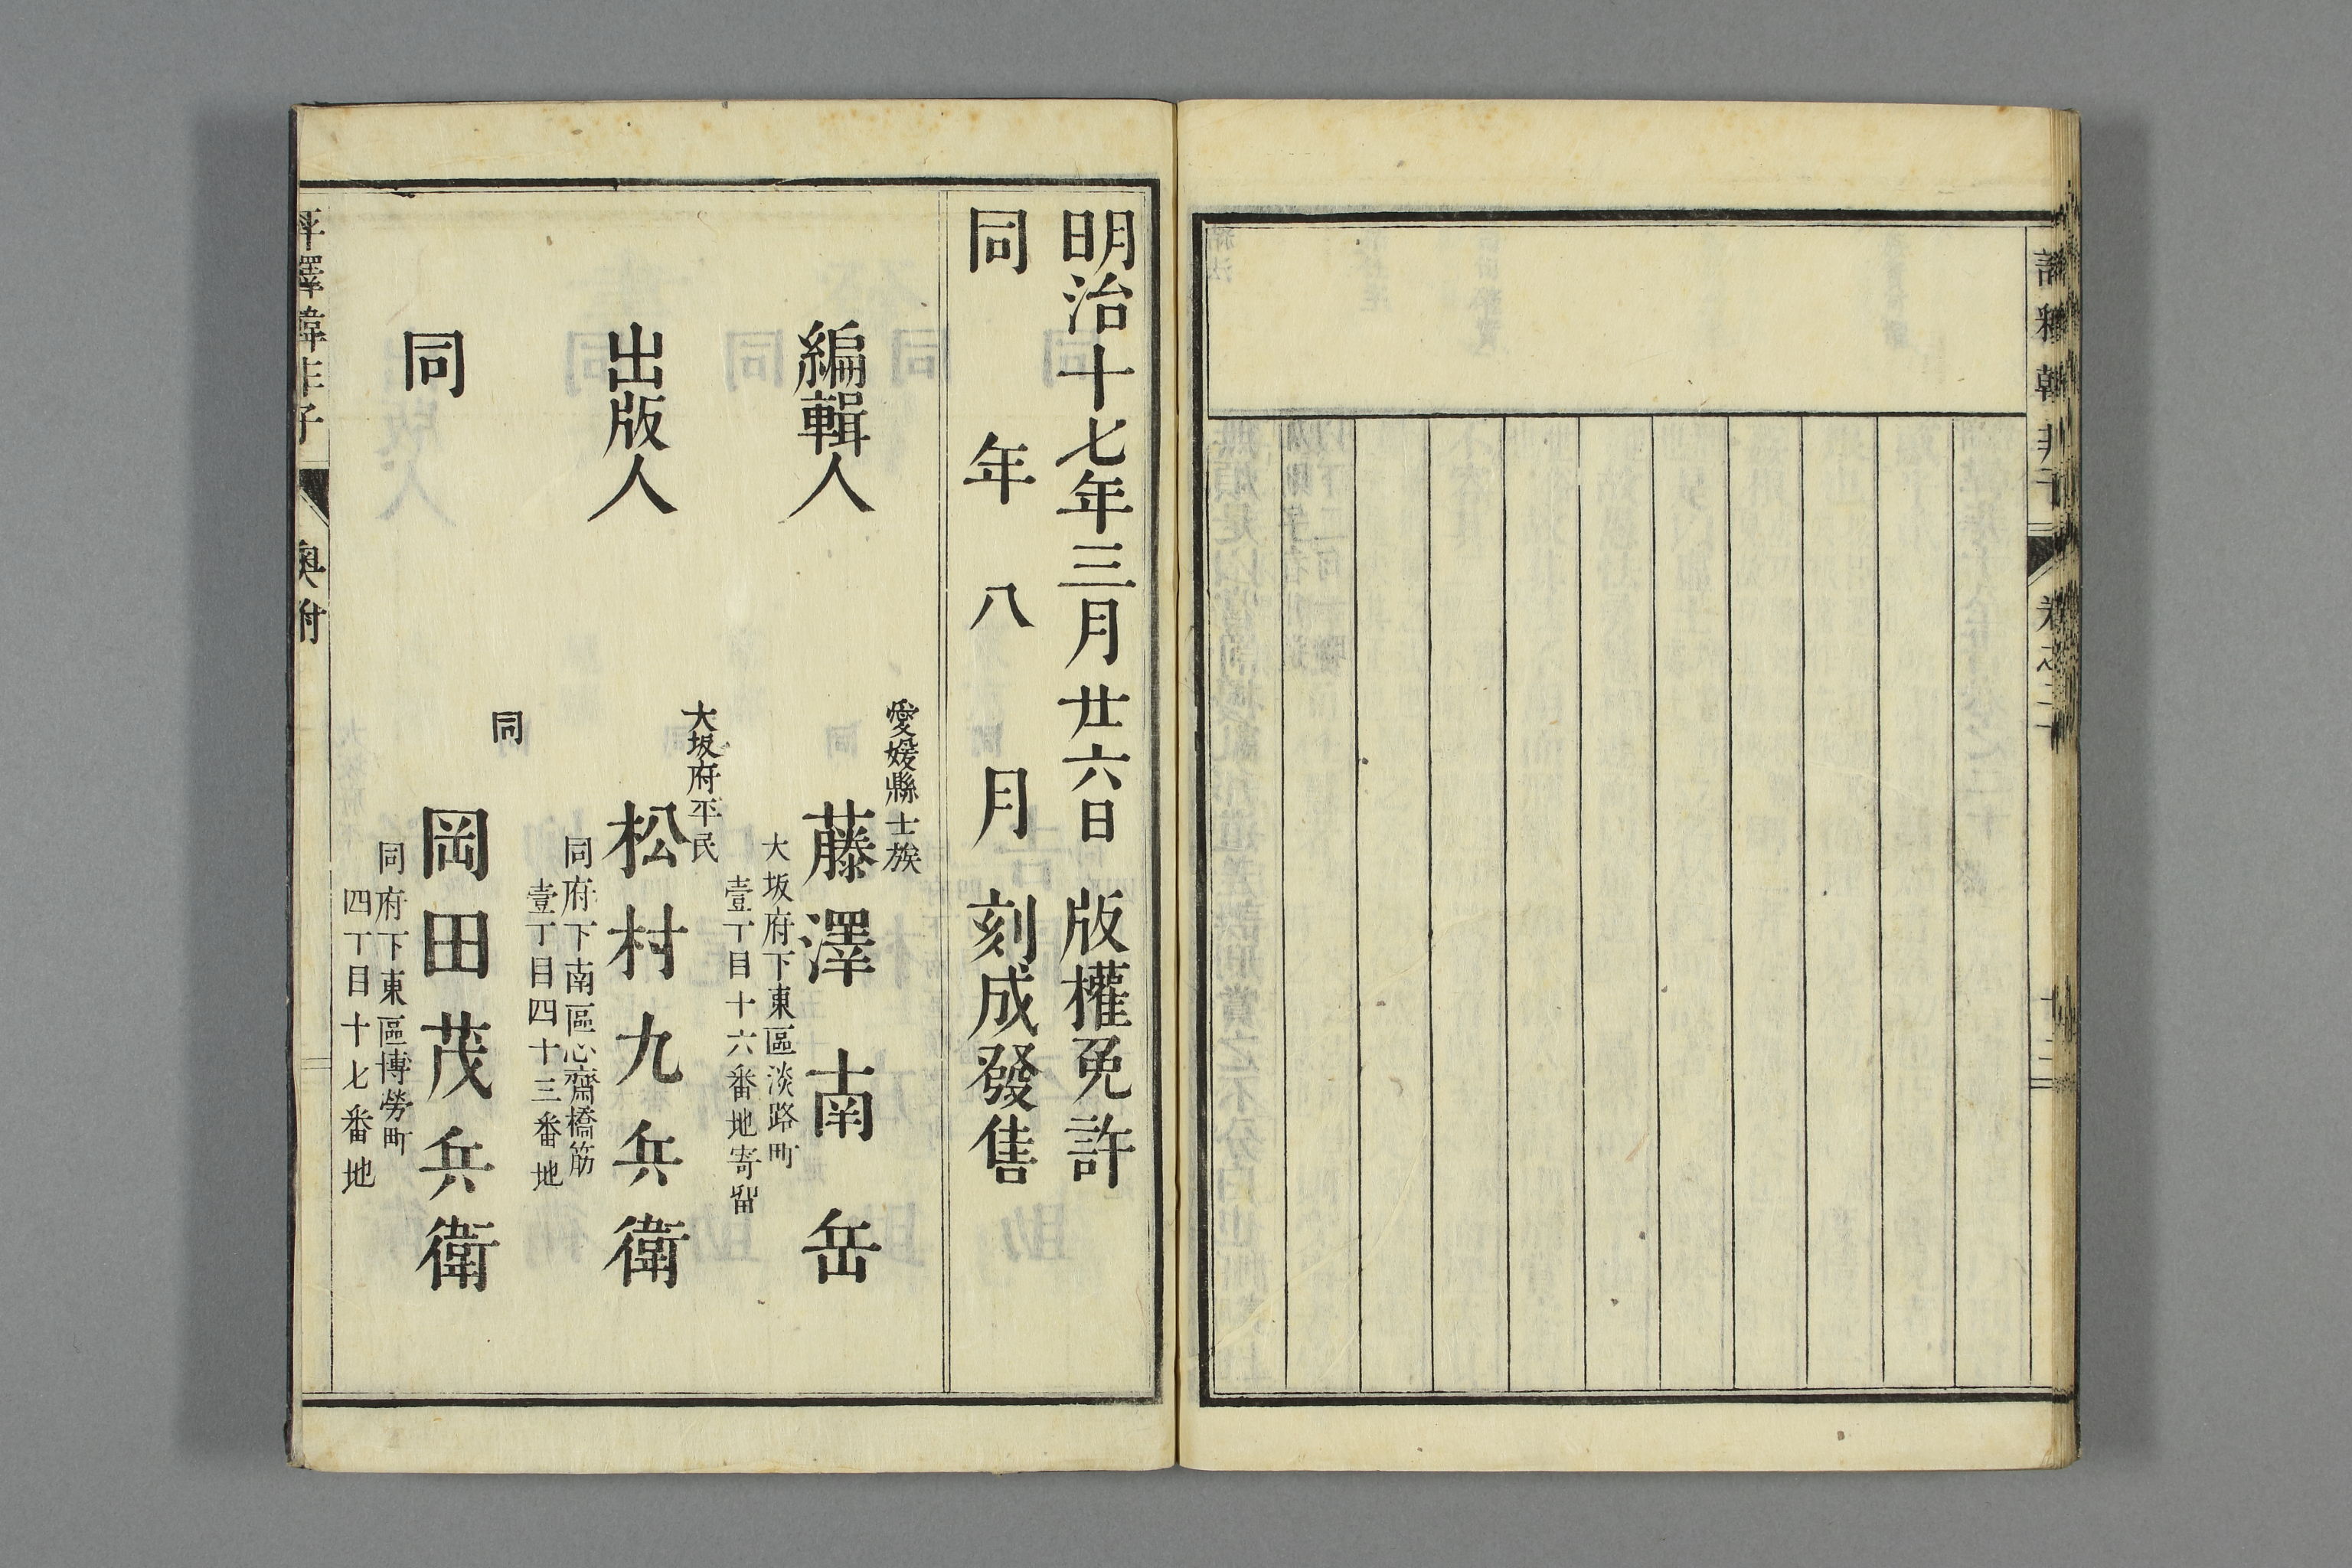 評釋韓非子
卷之二十
明治十七年三月廿六日 版權免許
同年八月 刻成發售
編輯人
愛媛縣士族
藤澤南岳
大坂府下東區淡路町
壹丁目十六番地寄留
出版人
大坂府平民
松村九兵衛
同府下南區心齋橋筋
壹丁目四十三番地
同
同
岡田茂兵衛
同府下東區博勞町
四丁目十七番地
評釋韓非子
奥附